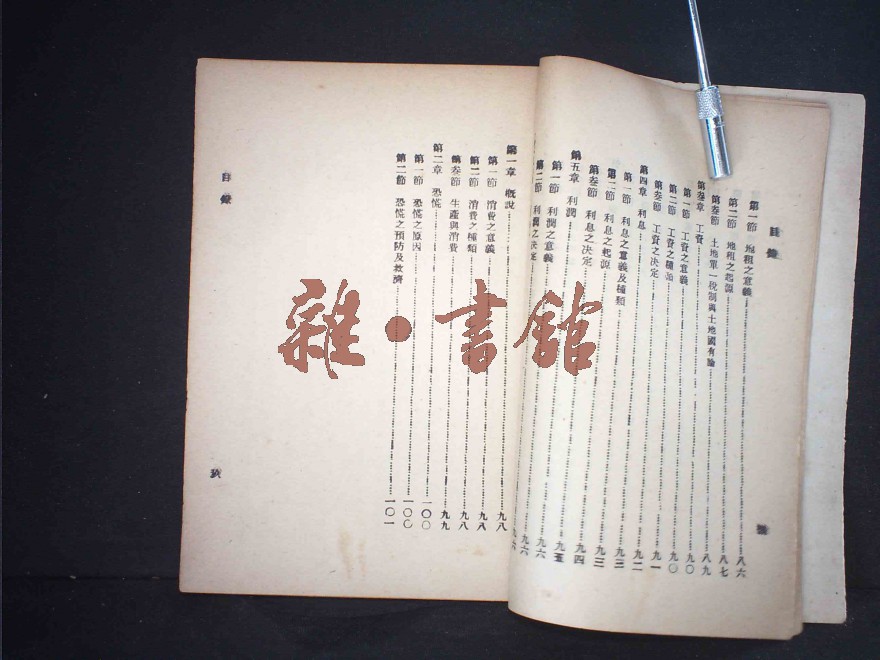 目錄
第一節 地租之意義 八六
第二節 地租之起源 八七
第叁節 土地單一稅制與土地國有論 八九
第叁章 工資 九〇
第一節 工資之意義 九〇
第二節 工資之種類 九〇
第叁節 工資之決定 九一
第四章 利息 九二
第一節 利息之意義及種類 九三
第二節 利息之起源 九三
第叁節 利息之決定 九四
第五章 利潤 九五
第一節 利潤之意義 九六
第二節 利潤之決定 九六
第一章 概說 九八
第一節 消費之意義 九八
第二節 消費之種類 九八
第叁節 生產與消費 九九
第二章 恐慌 一〇〇
第一節 恐慌之原因 一〇〇
第二節 恐慌之預防及救濟 一〇一
目錄
玖
雜·書館